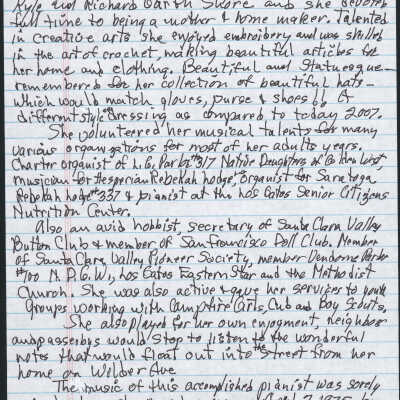 Kyle and Richard Garth Shore and she devoted
full time to being a mother & home maker. Talented
in creative arts she enjoyed embroidery and was skilled
in the art of crochet, making beautiful articles for
her home and clothing. Beautiful and Statuesque-
remembered for her collection of beautiful hats-
which would match gloves, purse & shoes!! A
different style dressing as compared to today 2007.
She volunteered her musical talents for many
various organizations for most of her adults years.
Charter organist of L.G. Parlor #317 Native Daughters of Golden West,
musician for Hesperian Rebekah Lodge, organist for Saratoga
Rebekah Lodge #337 & pianist at the Los Gatos Senior Citizens
Nutrition Center.
Also an avid hobbist, secretary of Santa Clara Valley
Button Club & member of San Francisco Doll Club. Member
of Santa Clara Valley Pioneer Society, member Vendome Parlor
#100 N.D.G.W., Los Gatos Eastern Star and the Methodist
Church. She was also active & gave her services to youth
groups working with Campfire Girls, Cub and Boy Scouts.
She also played for her own enjoyment, neighbors
and passerbys would stop to listen to the wonderful
notes that would float out into the street from her
home on Wilder Ave
The music of this accomplished pianist was sorely